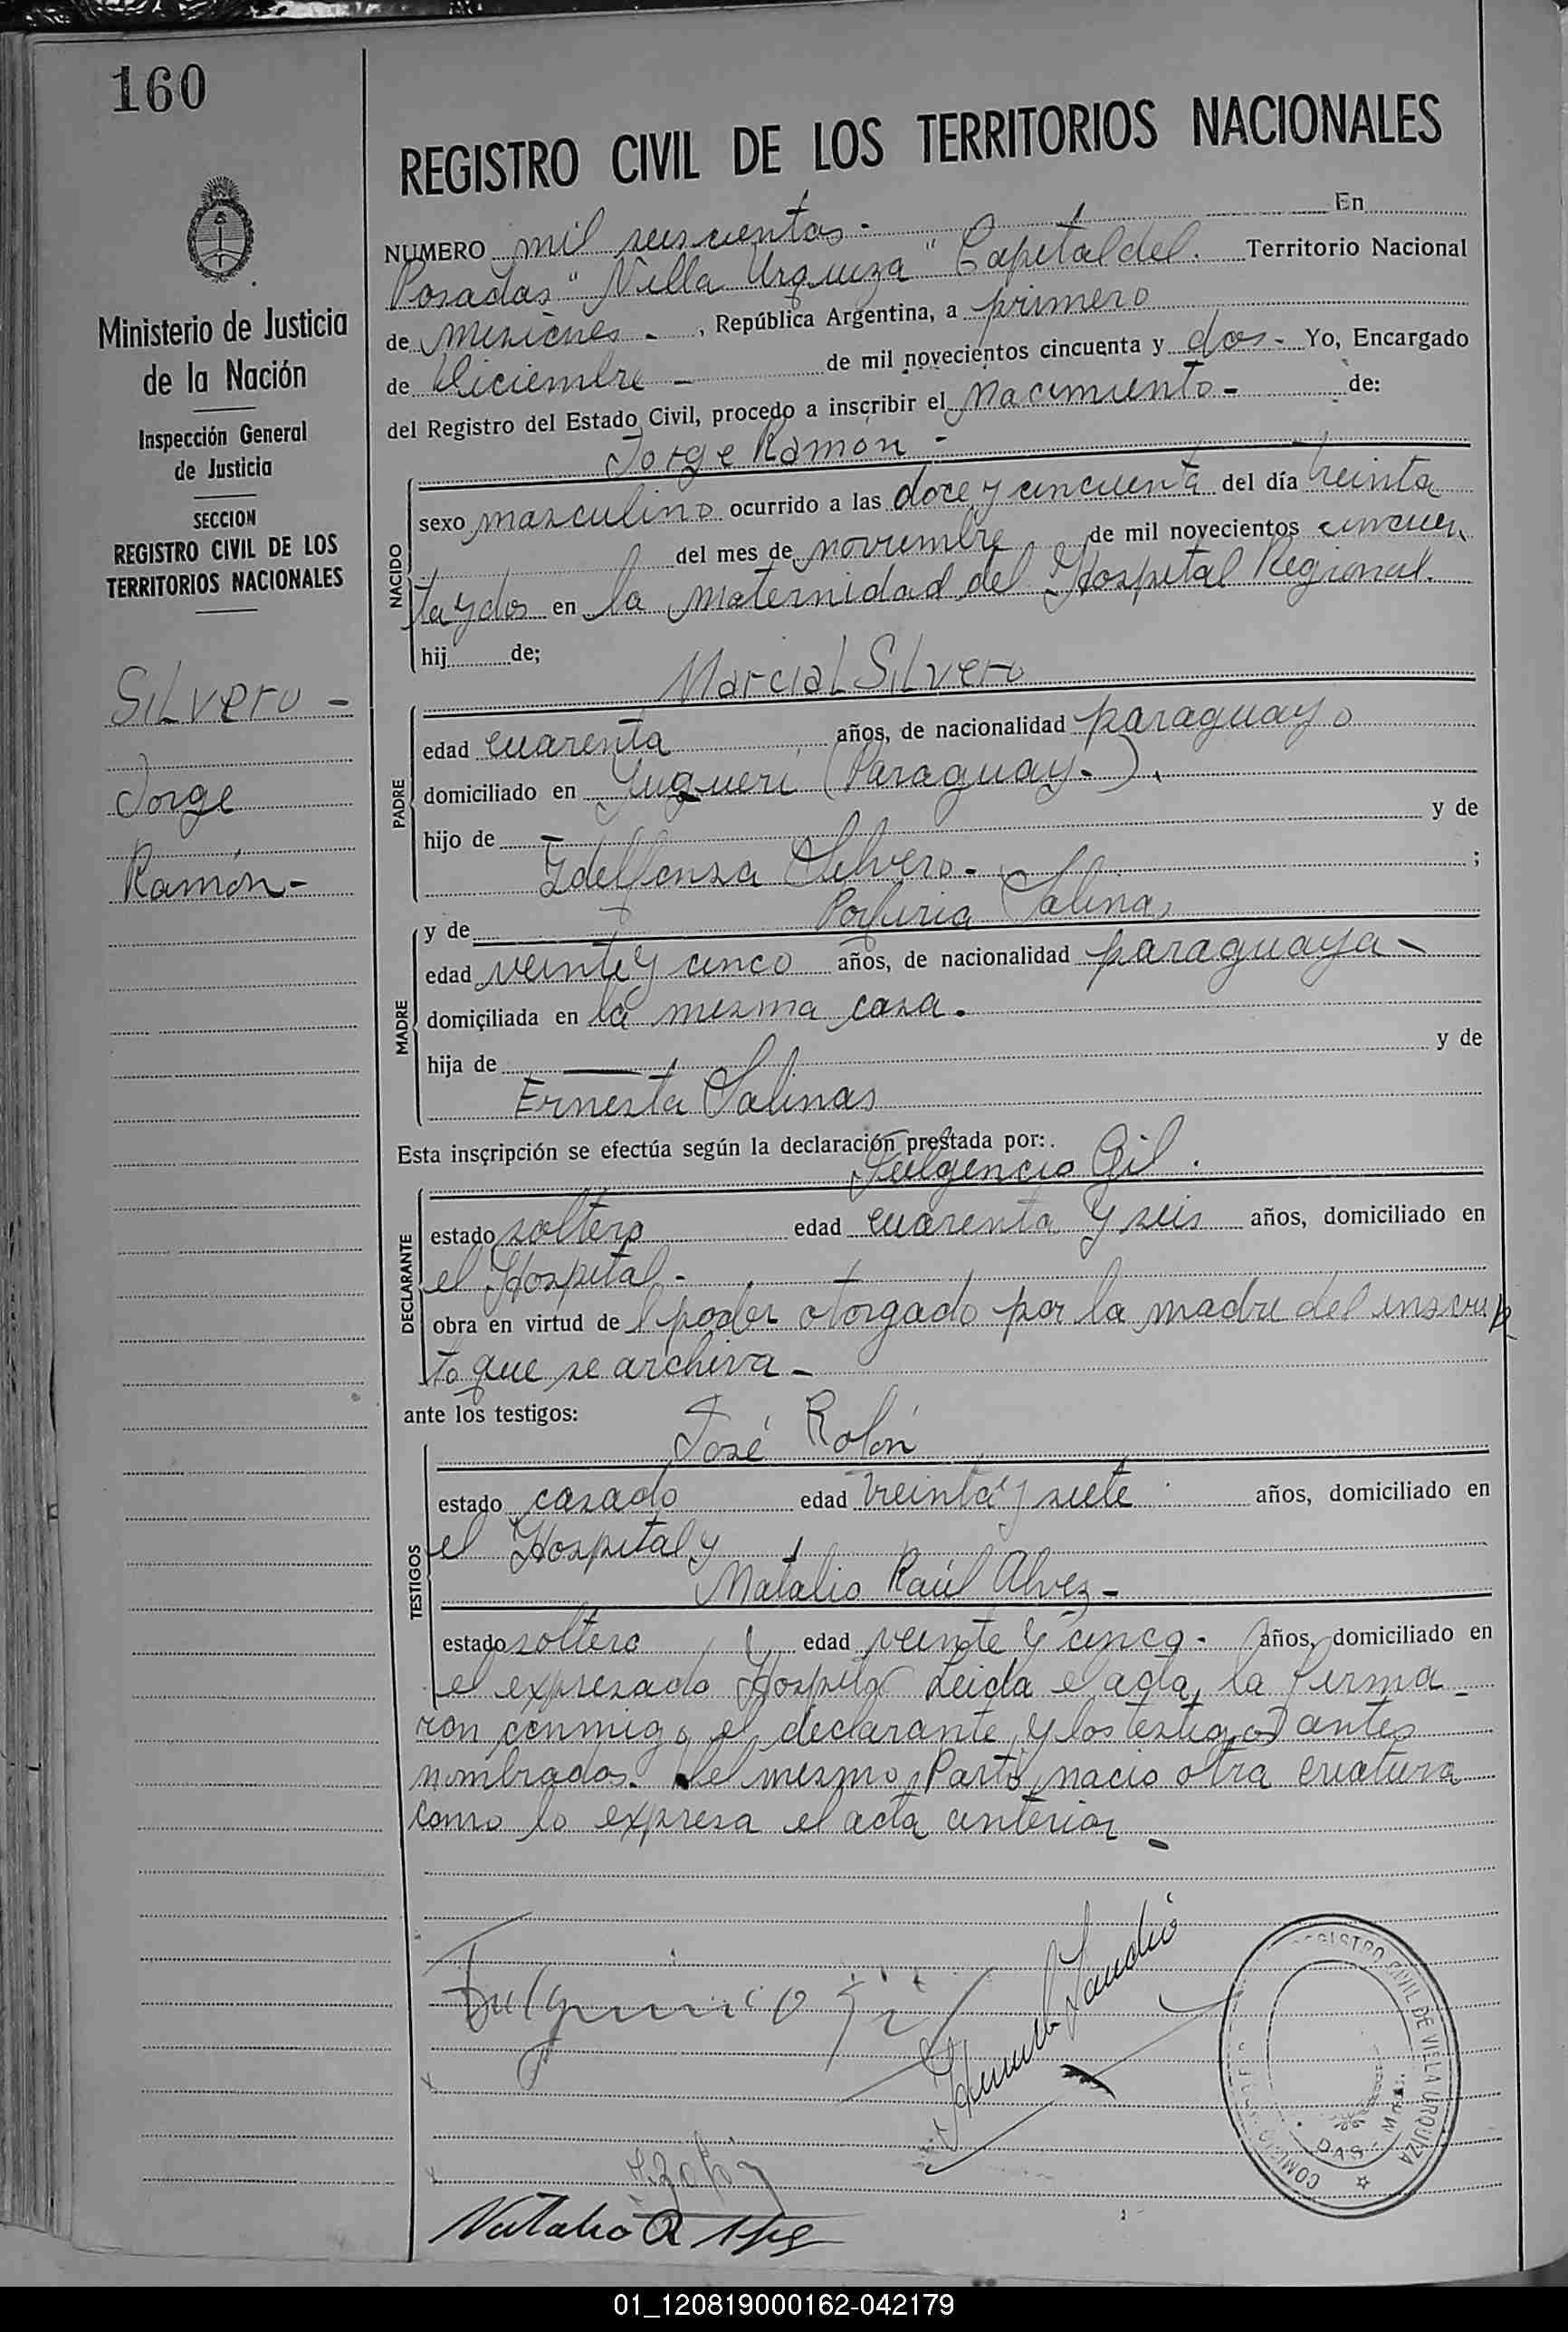 160
Ministerio de Justicia
de la Nación
Inspección General
de Justicia
SECCION
REGISTRO CIVIL DE LOS
TERRITORIOS NACIONALES
SILvero -
Jorge
Ramón -
REGISTRO CIVIL DE LOS TERRITORIOS NACIONALES
NUMERO mil seiscientos - En
Posadas "Villa Urquiza" Capital del. Territorio Nacional
de Misiones - , República Argentina, a primero
de Diciembre - de mil novecientos cincuenta y dos - Yo, Encargado
del Registro del Estado Civil, procedo a inscribir el Nacimiento - de:
Jorge Ramón -
NACIDO
sexo masculino ocurrido a las doce y cincuenta del día treinta
del mes de noviembre de mil novecientos cincuen
ta y dos en la maternidad del Hospital Regional.
hij de;
Marcial Silvero
PADRE
edad cuarenta años, de nacionalidad paraguayo
domiciliado en Yuquerí (Paraguay.).
hijo de y de
Idelfonsa Silvero - ;
y de Porfiria Salinas
MADRE
edad veinte y cinco años, de nacionalidad paraguaya -
domiciliada en la misma casa.
hija de — y de
Ernesta Salinas
Esta inscripción se efectúa según la declaración prestada por:.
Fulgencio Gil.
DECLARANTE
estado soltero edad cuarenta y seis años, domiciliado en
el Hospital -
obra en virtud de l poder otorgado por la madre del inscrip
to que se archiva -
ante los testigos:
José Rolón
TESTIGOS
estado casado edad treinta y siete años, domiciliado en
el Hospital y
Natalio Raúl Alvez -
estado soltero edad veinte y cinco - años, domiciliado en
el expresado Hospital Leida el acta, la firma -
ron conmigo el declarante y los testigos antes
nombrados. Del mismo Parto nacio otra criatura
como lo expresa el acta anterior -
Fulgencio Gil
REGISTRO CIVIL DE VILLA URQUIZA
Natalio R Alvez
01_120819000162-042179